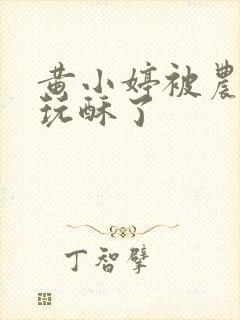 黄小婷被農
玩酥了
丁智擘